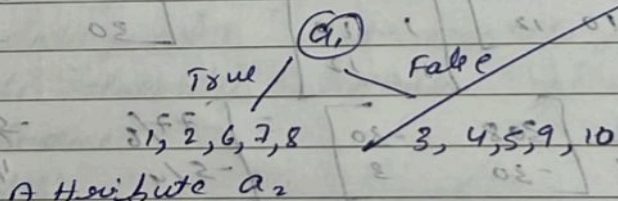 a₁
True False
1, 2, 6, 7, 8 3, 4, 5, 9, 10
Attribute a₂